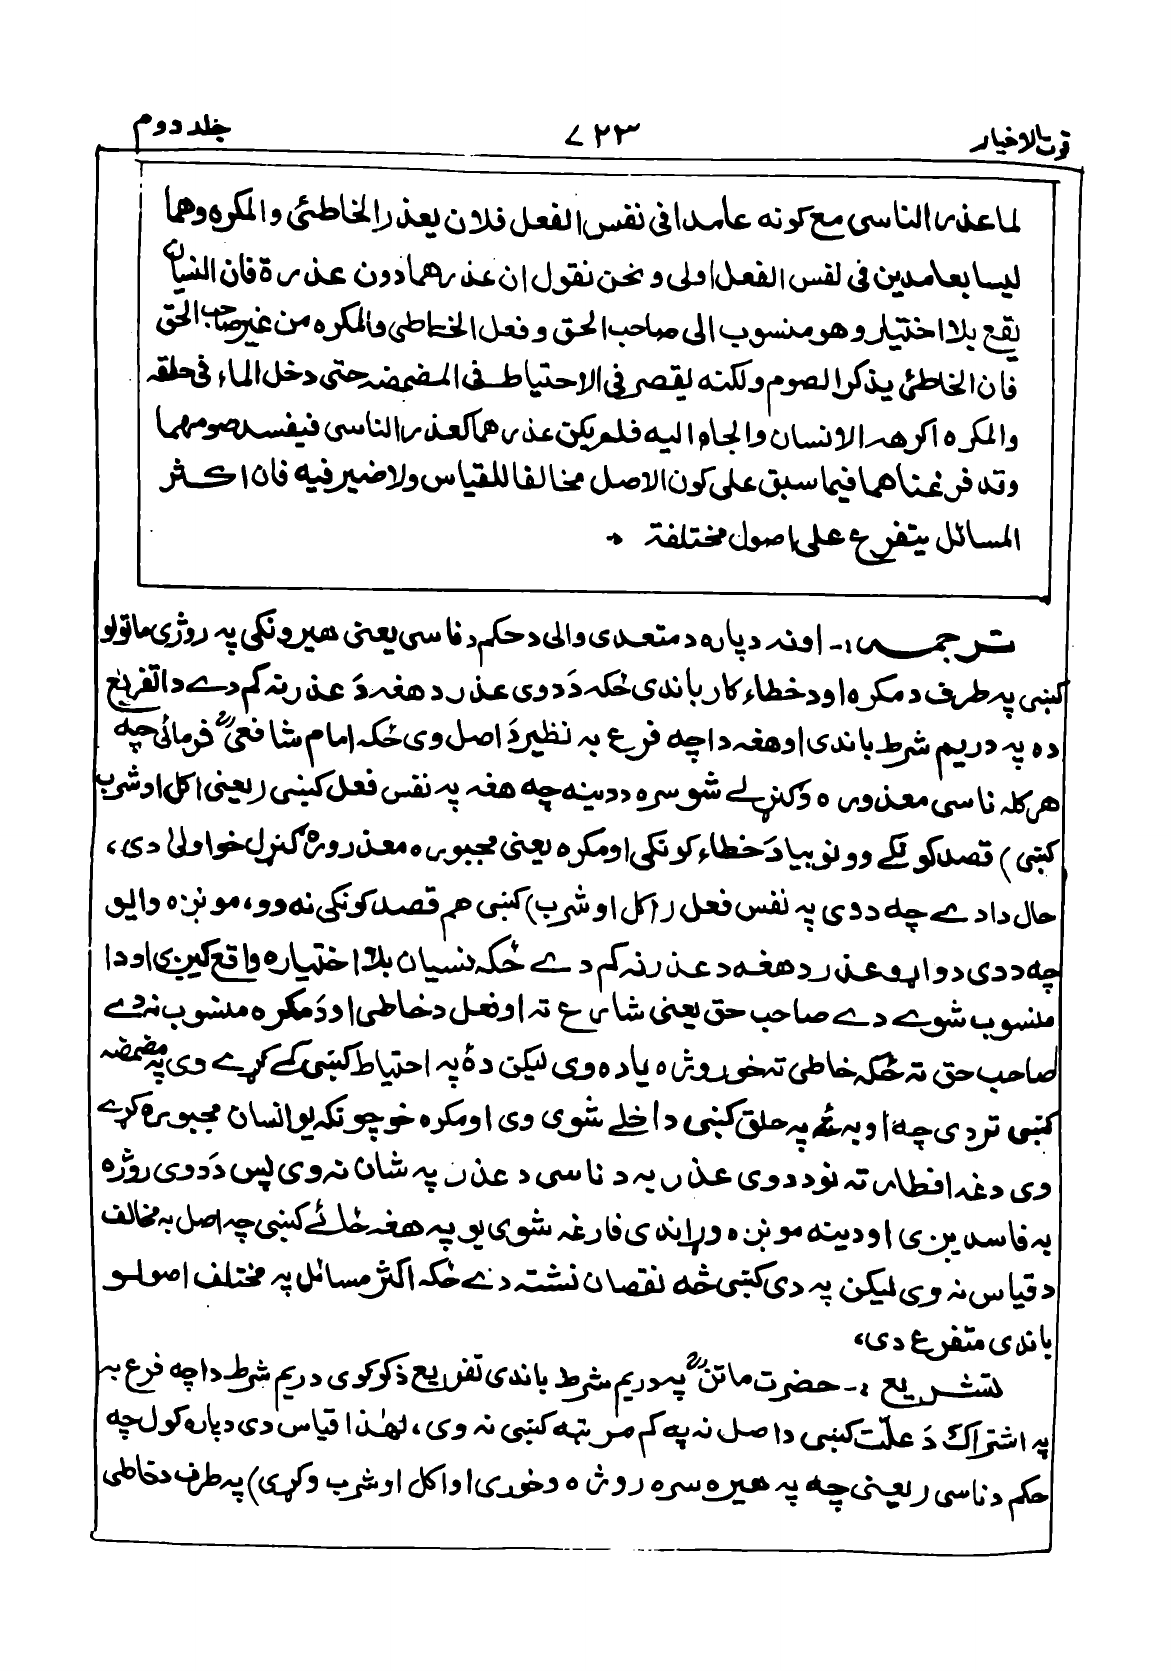 قوت الاخیار ۷۲۳ جلد دوم
لما عذر الناسی مع کونه عامدا فی نفس الفعل فلان یعذر الخاطئ والمکره وهما
لیسا بعامدین فی نفس الفعل اولی و نحن نقول ان عذرهما دون عذره فان النسیان
یقع بلا اختیار وهو منسوب الی صاحب الحق و فعل الخاطی والمکره من غیر صاحب الحق
فان الخاطئ یذکر الصوم ولکنه یقصر فی الاحتیاط فی المضمضه حتی دخل الماء فی حلقه
والمکره اکرهه الانسان والجاه الیه فلم یکن عذرهما کعذر الناسی فیفسد صومهما
وقد فرغناهما فیما سبق علی کون الاصل مخالفا للقیاس ولا ضیر فیه فان اکثر
المسائل یتفرع علی اصول مختلفة
ترجمه :- او نه دپاره د متعدی والی د حکم د ناسی یعنی هیرونکی په روژی ماتولو
کښی په طرف د مکره او د خطاء کار باندی ځکه دَ دوی عذر د هغه دَ عذر نه کم دے دا تفریع
ده په دریم شرط باندی او هغه دا چه فرع به نظیر دَ اصل وی ځکه امام شافعیؒ فرمائی چه
هر کله ناسی معذوره وګنړلے شو سره ددینه چه هغه په نفس فعل کښی (یعنی اکل او شرب
کښی) قصد کونکے وو نو بیا دَ خطاء کونکی او مکره یعنی مجبوره معذوره ګنړل خو اولیٰ دی،
حال دا دے چه دوی په نفس فعل (اکل او شرب) کښی هم قصد کونکی نه وو، مونږه وایو
چه ددی دواړو عذر د هغه د عذر نه کم دے ځکه نسیان بلا اختیاره واقع کیږی او دا
منسوب شوے دے صاحب حق یعنی شارع ته او فعل د خاطی او دَ مکره منسوب نه دے
صاحب حق ته ځکه خاطی ته خو روژه یاده وی لیکن دهٔ په احتیاط کښی کے کړے وی په مضمضه
کښی تردی چه اوبه ئے په حلق کښی داخلے شوی وی او مکره خو چونکه یو انسان مجبوره کړے
وی دغه افطار ته نو ددوی عذر به د ناسی د عذر په شان نه وی پس دَ دوی روژه
به فاسدیږی او دینه مونږه وړاندی فارغه شوی یو په هغه ځائے کښی چه اصل به مخالف
د قیاس نه وی لیکن په دی کښی څه نقصان نشته دے ځکه اکثر مسائل په مختلف اصولو
باندی متفرع دی،
تشریع :- حضرت ماتنؒ په دریم شرط باندی تفریع ذکر کوی دریم شرط دا چه فرع به
په اشتراک دَ علّت کښی د اصل نه په کم مرتبه کښی نه وی، لهٰذا قیاس دی دپاره کول چه
حکم د ناسی (یعنی چه په هیره سره روژه وخوری او اکل او شرب وکړی) په طرف د خاطی